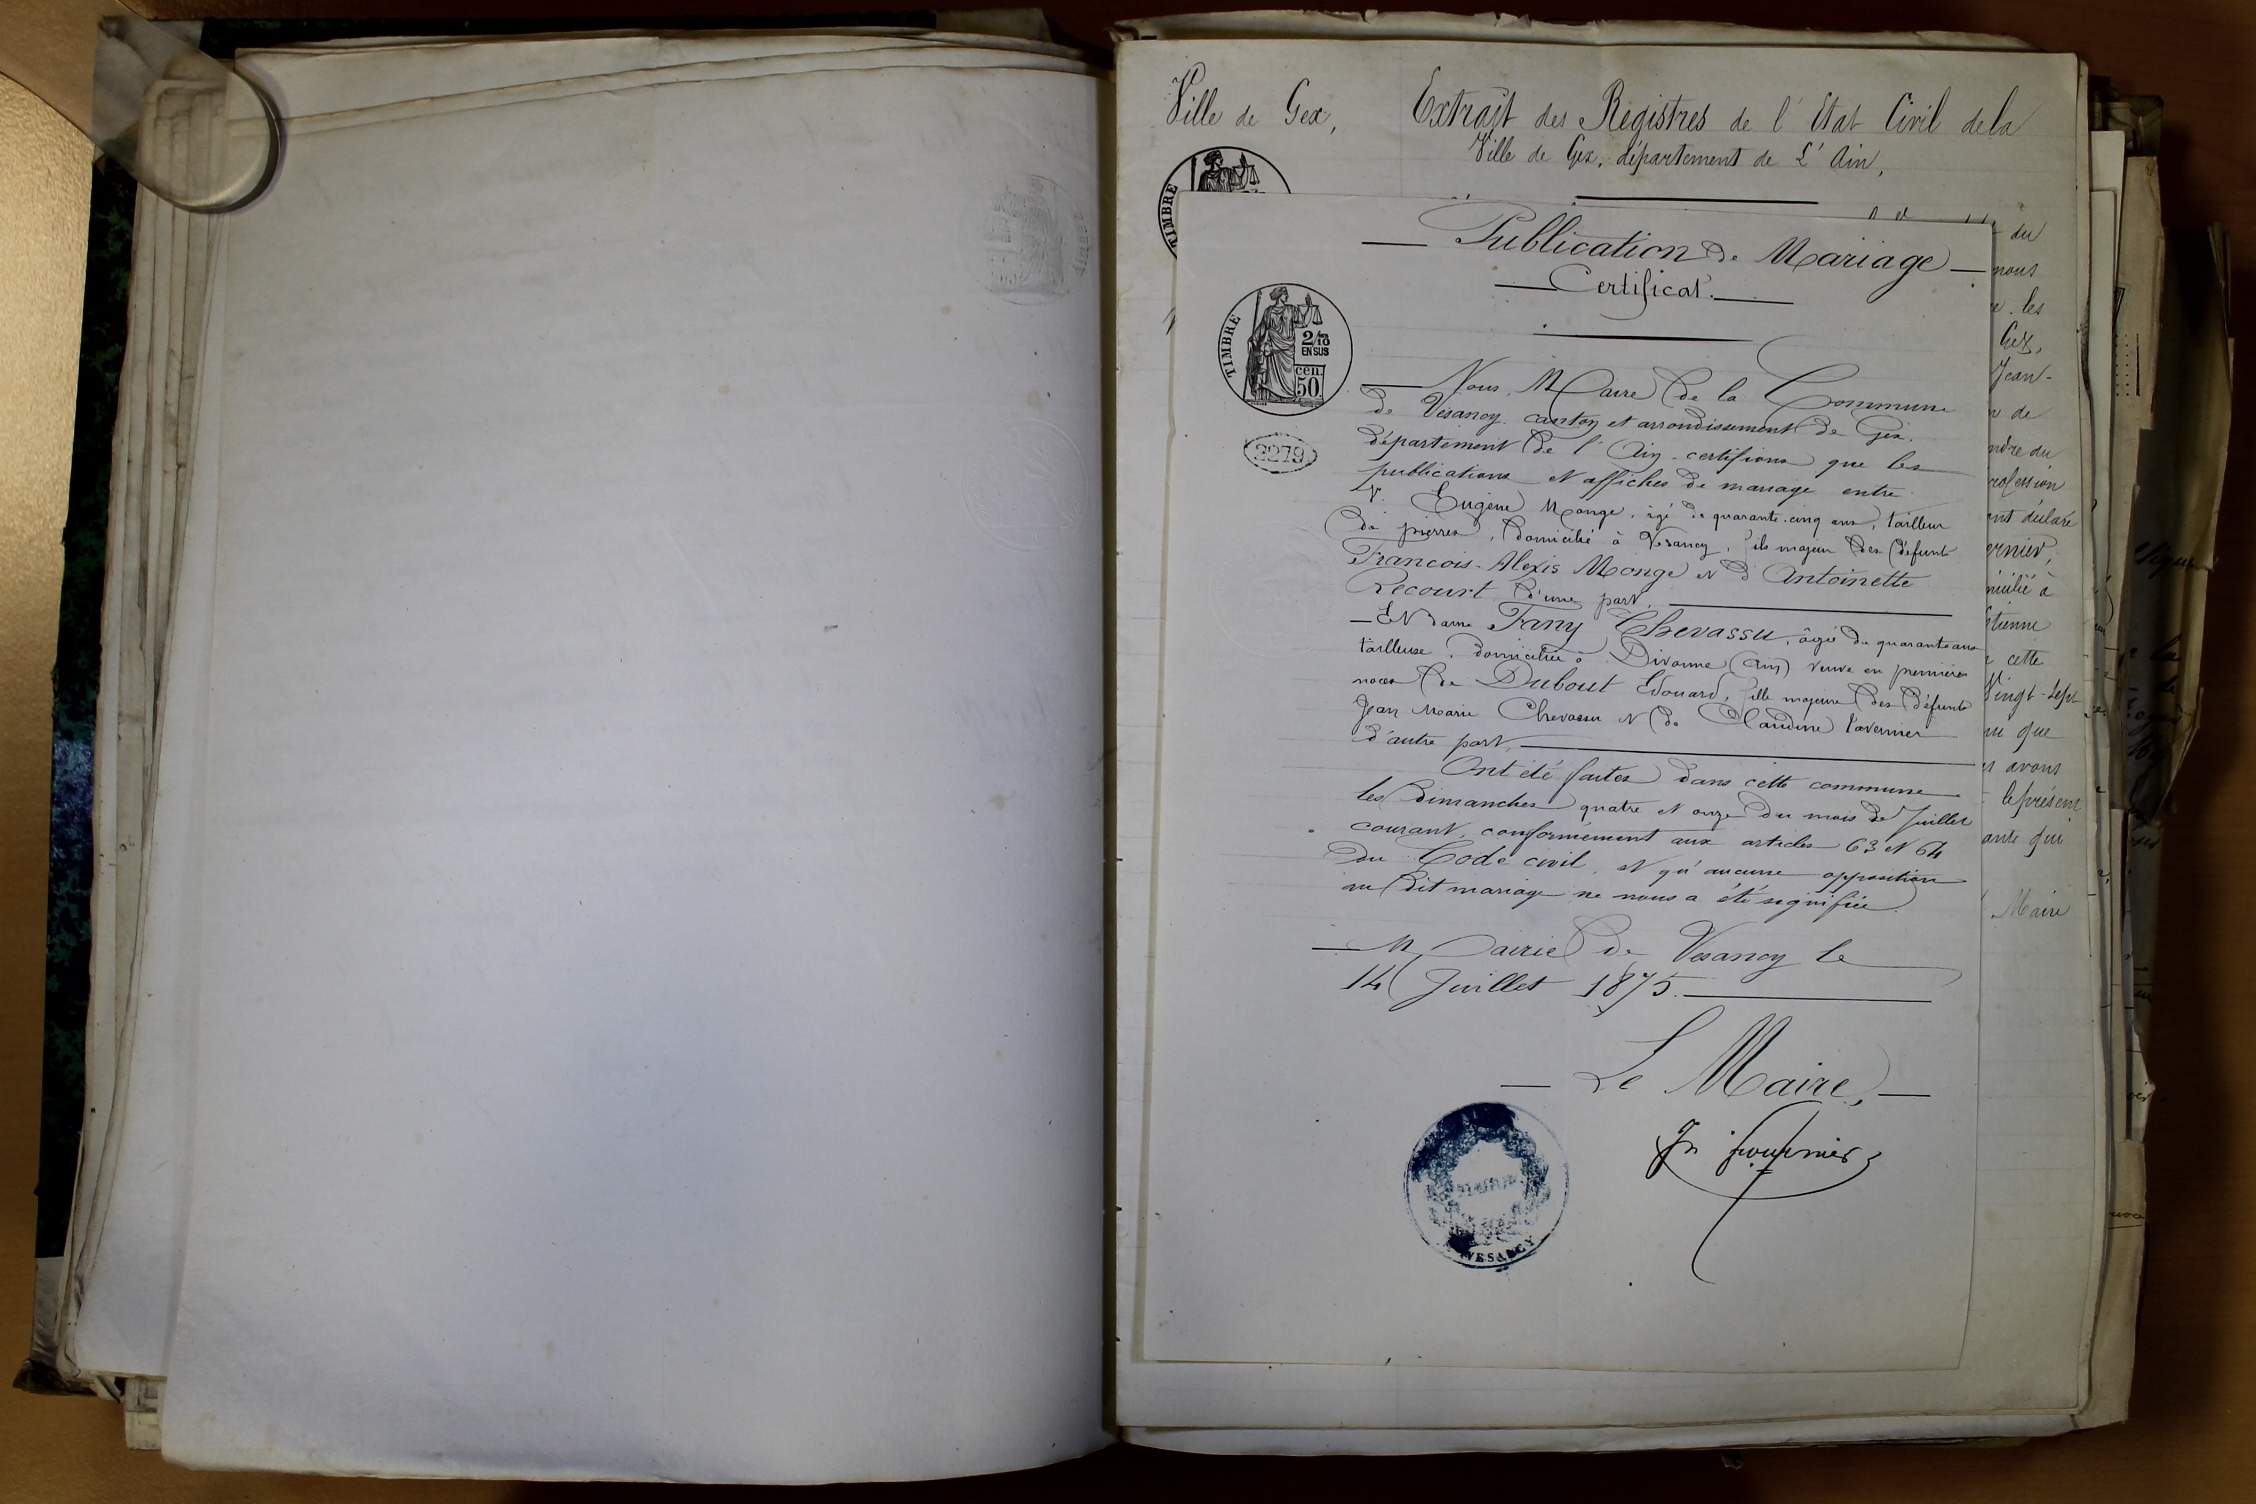 Ville de Gex,
Extrait des Registres de l'Etat Civil de la
Ville de Gex, département de L'Ain,
TIMBRE
du
nous
les
Gex,
Jean-
de
ndre du
rofession
ont déclaré
ernier,
micilié à
Etienne
cette
Vingt-sept
que
avons
le présent
ante qui
Maire
Publication de Mariage
Certificat.
TIMBRE
2/10
EN SUS
cen.
50
2279
Nous, Maire de la Commune
de Vesancy, canton et arrondissement de Gex,
département de l'Ain, certifions que les
publications et affiches de mariage entre
Sr. Eugène Monge, âgé de quarante-cinq ans, tailleur
de pierres, domicilié à Vesancy, fils majeur des défunts
François-Alexis Monge et d'Antoinette
Recourt d'une part,
Et dame Fany Chevassu, âgée de quarante ans
tailleuse, domiciliée à Divonne (Ain) veuve en premières
noces de Dubout Edouard, fille majeure des défunts
Jean Marie Chevassu et de Claudine Tavernier
d'autre part,
Ont été faites dans cette commune
les dimanches quatre et onze du mois de Juillet
courant, conformément aux articles 63 et 64
du Code civil, et qu'aucune opposition
au dit mariage ne nous a été signifiée.
Mairie de Vesancy le
14 Juillet 1875.
Le Maire,
fournier
VESANCY